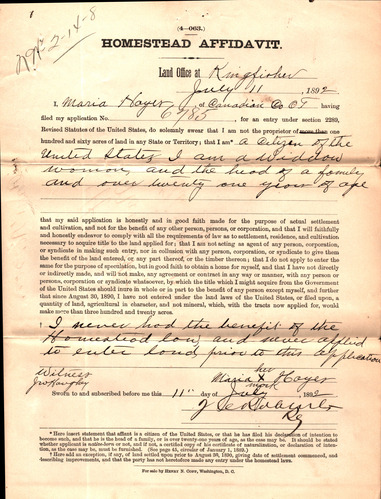 (4—063.)
HOMESTEAD AFFIDAVIT.
Land Office at Kingfisher
July 11, 1892
I, Maria Hayes, of Canadian Co OT having
filed my application No. 6785, for an entry under section 2289,
Revised Statutes of the United States, do solemnly swear that I am not the proprietor of more than one
hundred and sixty acres of land in any State or Territory; that I am* a citizen of the
United States I am a widdow
woman and the head of a family
and over twenty one years of age
that my said application is honestly and in good faith made for the purpose of actual settlement
and cultivation, and not for the benefit of any other person, persons, or corporation, and that I will faithfully
and honestly endeavor to comply with all the requirements of law as to settlement, residence, and cultivation
necessary to acquire title to the land applied for; that I am not acting as agent of any person, corporation,
or syndicate in making such entry, nor in collusion with any person, corporation, or syndicate to give them
the benefit of the land entered, or any part thereof, or the timber thereon; that I do not apply to enter the
same for the purpose of speculation, but in good faith to obtain a home for myself, and that I have not directly
or indirectly made, and will not make, any agreement or contract in any way or manner, with any person or
persons, corporation or syndicate whatsoever, by which the title which I might acquire from the Government
of the United States should inure in whole or in part to the benefit of any person except myself, and further
that since August 30, 1890, I have not entered under the land laws of the United States, or filed upon, a
quantity of land, agricultural in character, and not mineral, which, with the tracts now applied for, would
make more than three hundred and twenty acres.
I never had the benefit of the
Homestead law and never applied
to enter land prior to this application
Witness
her
Maria X Hayes
mark
Sworn to and subscribed before me this 11" day of July 1892
* Here insert statement that affiant is a citizen of the United States, or that he has filed his declaration of intention to
become such, and that he is the head of a family, or is over twenty-one years of age, as the case may be. It should be stated
whether applicant is native-born or not, and if not, a certified copy of his certificate of naturalization, or declaration of inten-
tion, as the case may be, must be furnished. (See page 45, circular of January 1, 1889.)
For sale by HENRY N. COPP, Washington, D. C.